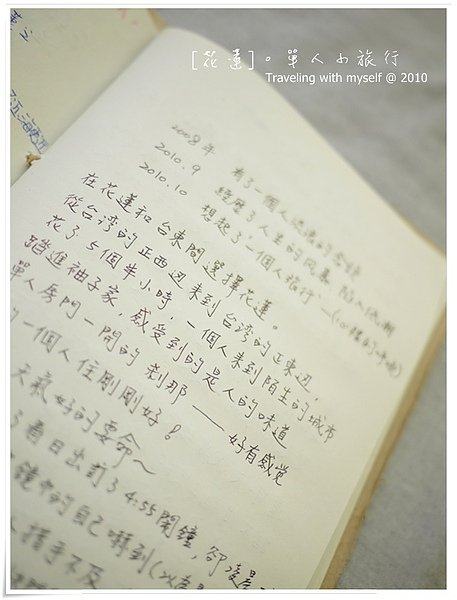 [花蓮]。單人小旅行
Traveling with myself @ 2010
2008年 有了一個人流浪的念頭
2010.9 經歷了人生的風暴 陷入低潮
2010.10 想起了"一個人旅行"
在花蓮和台東間選擇花蓮。
從台湾的正西辺來到台湾的正東辺，
花了5個半小時，一個人來到陌生的城市
踏進袖子家，感受到的是人的味道
單人房門一開的剎那——好有感覚
一個人住剛剛好！
天氣好的要命~
看日出前了4:55鬧鐘，卻凌晨
鏡中的自己嚇到
措手不及